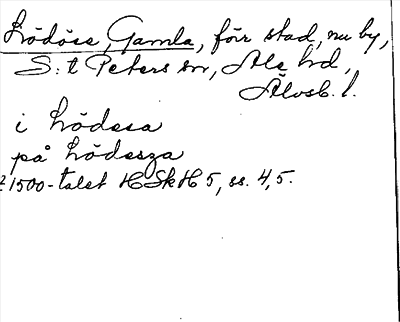 Lödöse, Gamla, förr stad, nu by,
S:t Peters sn, Ale hd,
Älvsb. l.
i Lödesa
på Lödesza
1500-talet HSkH 5, ss. 4, 5.